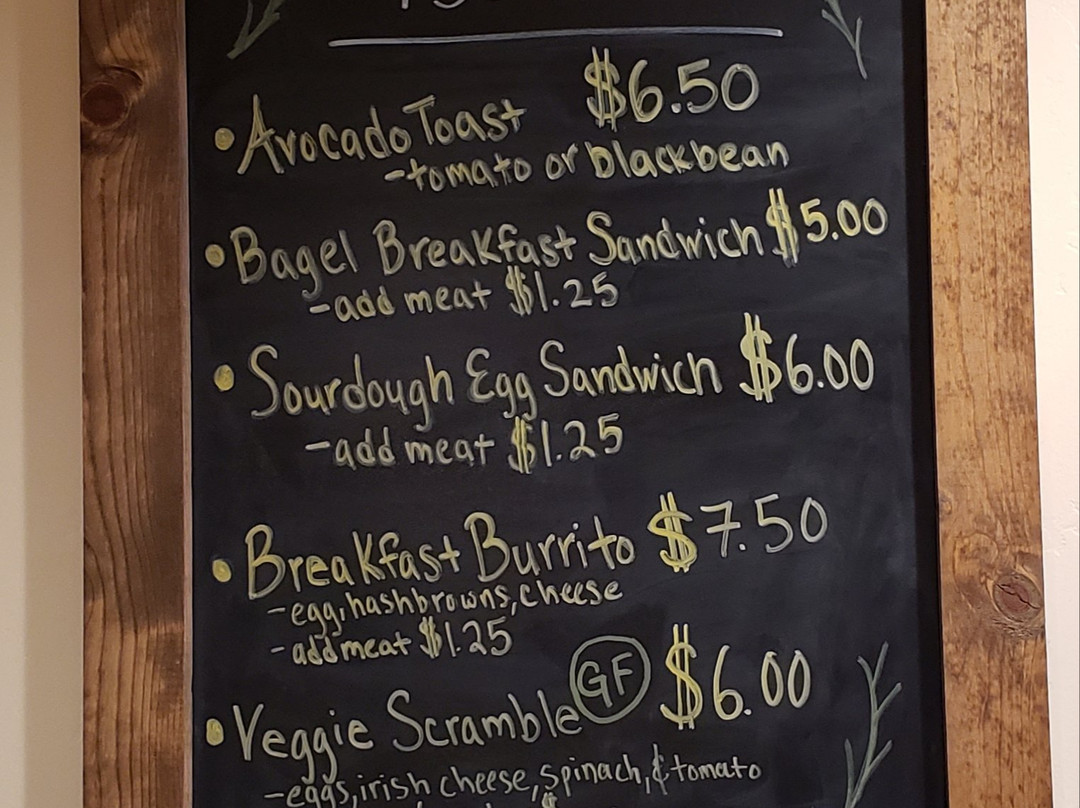 • Avocado Toast $6.50
-tomato or blackbean
• Bagel Breakfast Sandwich $5.00
-add meat $1.25
• Sourdough Egg Sandwich $6.00
-add meat $1.25
• Breakfast Burrito $7.50
-egg, hashbrowns, cheese
-add meat $1.25
• Veggie Scramble GF $6.00
-eggs, irish cheese, spinach, & tomato